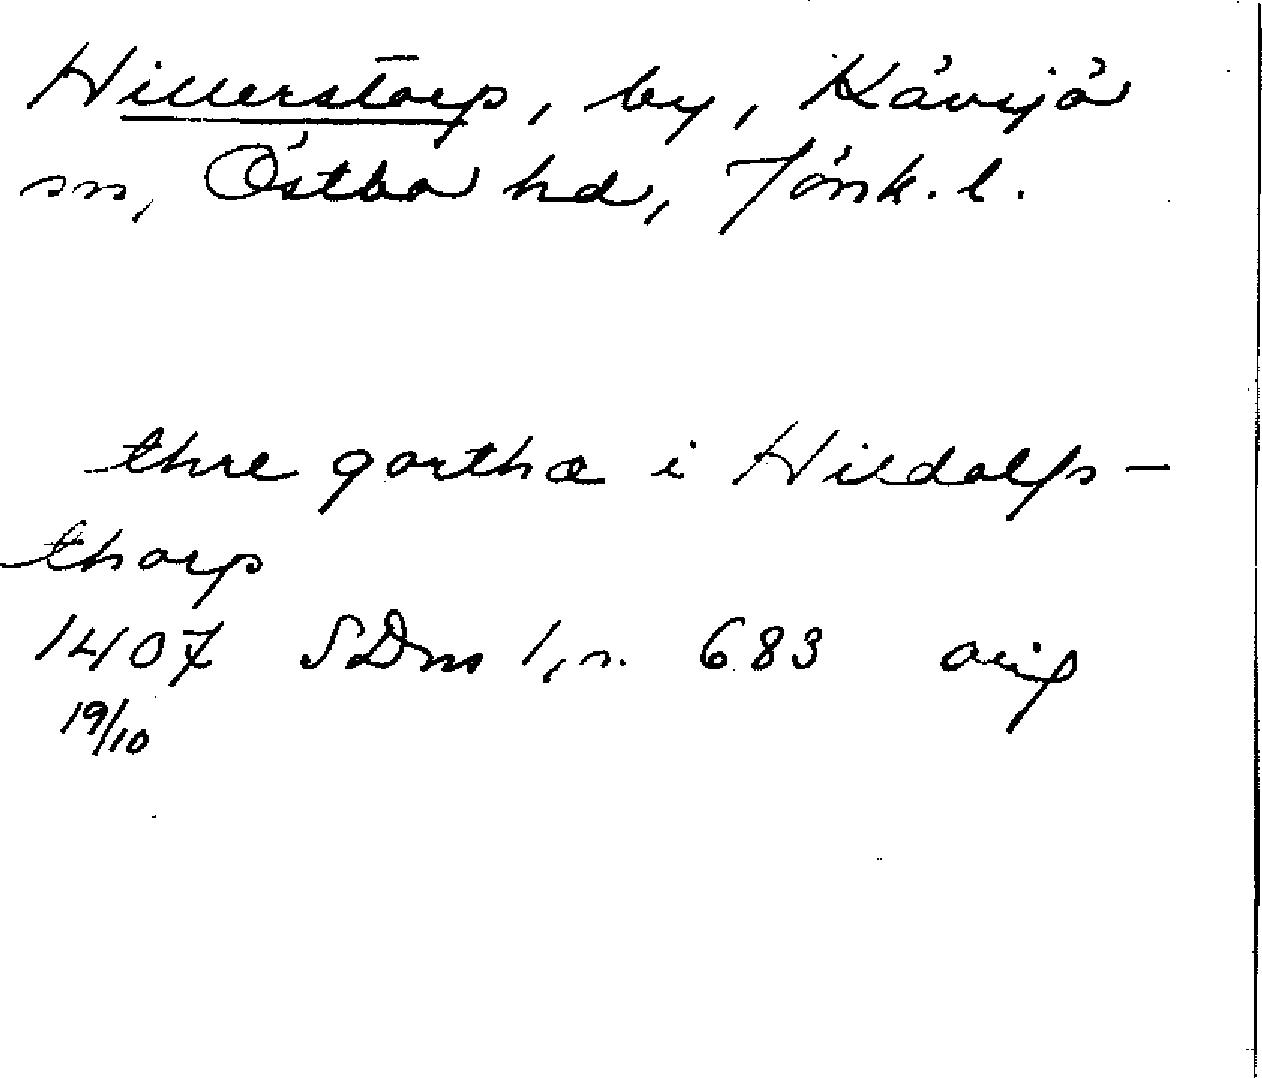 Hillerstorp, by, Kävsjö
sn, Östbo hd, Jönk. l.
thre gartha i Hildolfs-
thorp
1407 SDns 1, n. 683 orig
19/10